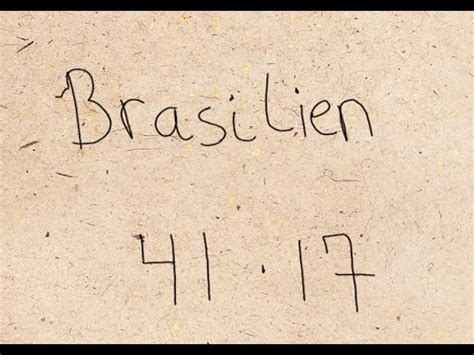 Brasilien
41.17